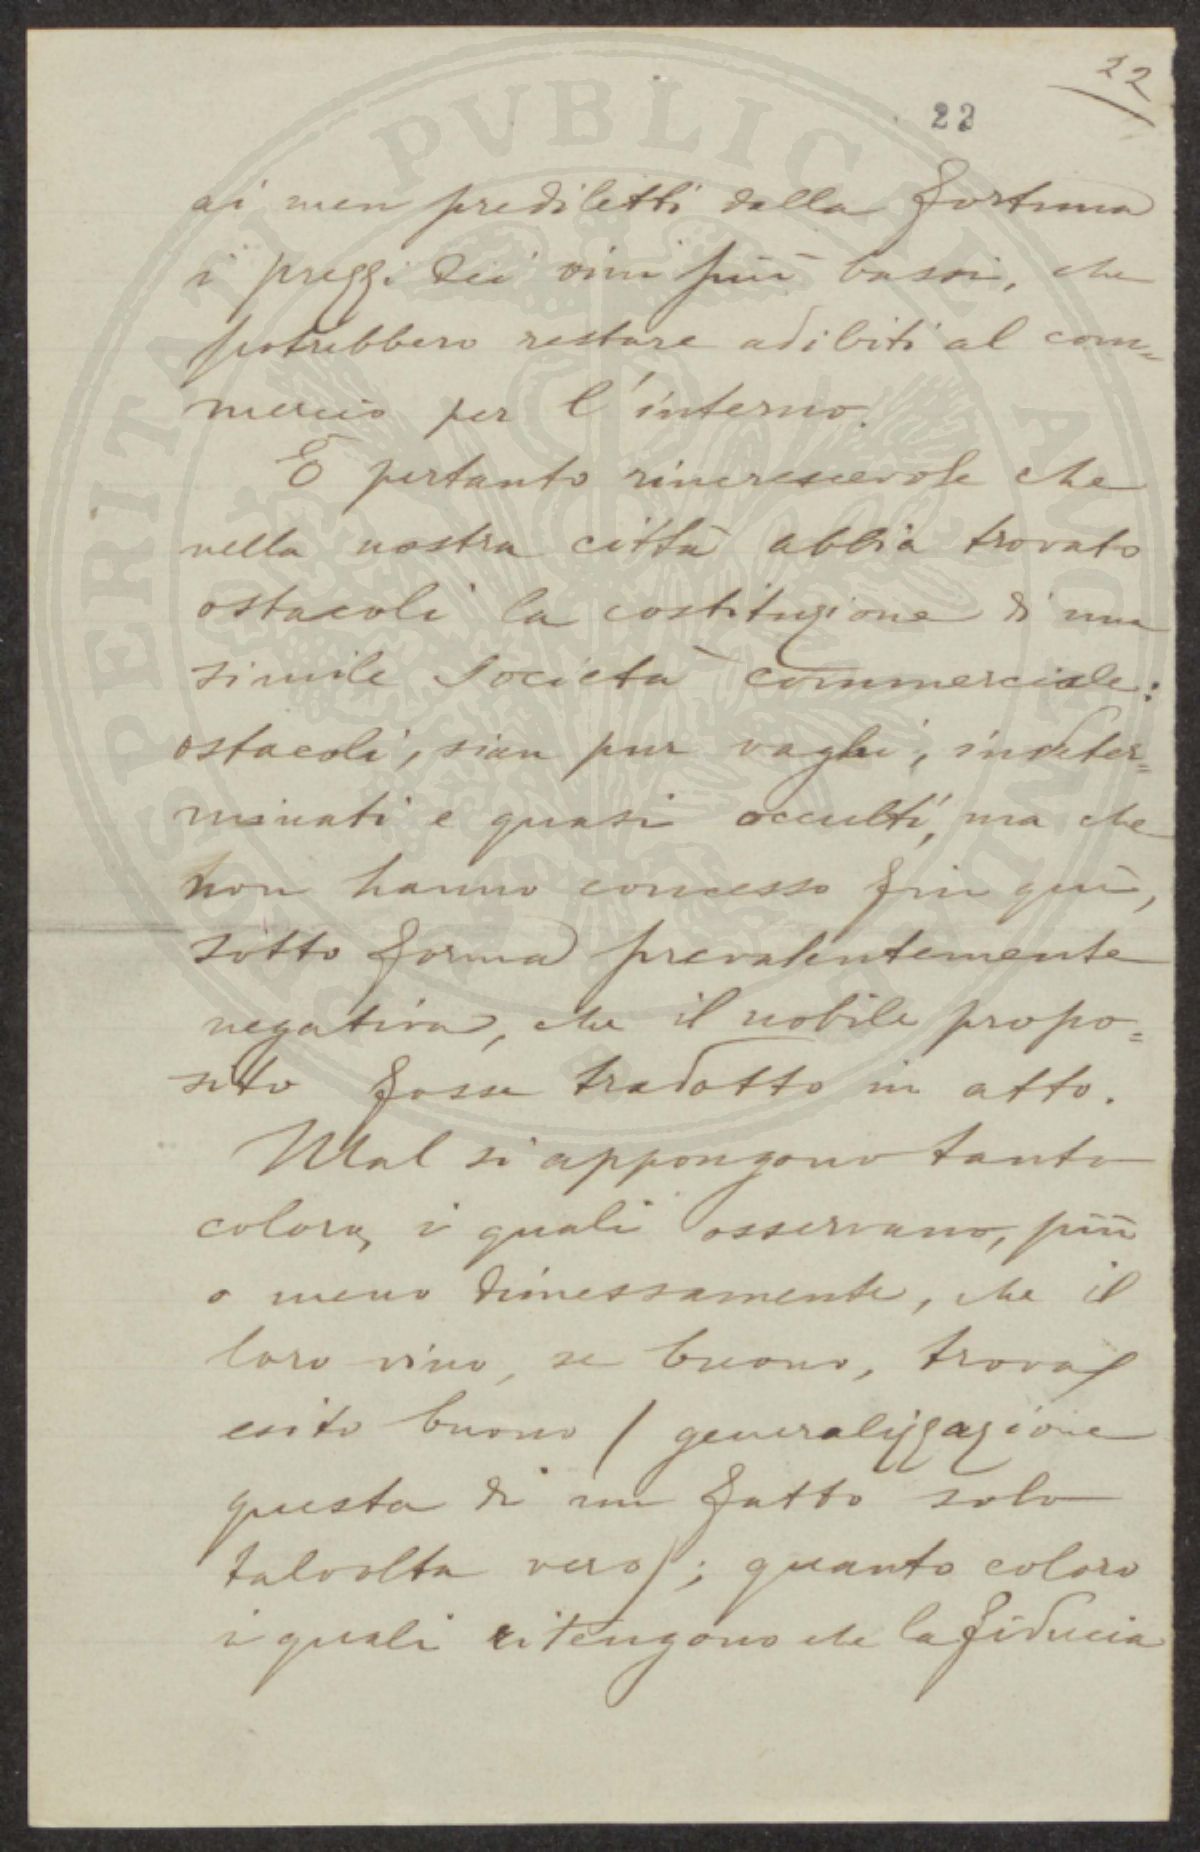 22
22
ai men prediletti dalla fortuna
i prezzi dei vini più bassi, che
potrebbero restare adibiti al com=
mercio per l'interno.
È pertanto rincrescevole che
nella nostra città abbia trovato
ostacoli la costituzione di una
simile società commerciale:
ostacoli, sien pur vaghi, indeter=
minati e quasi occulti, ma che
non hanno concesso fin quì,
sotto forma prevalentemente
negativa, che il nobile propo=
sito fosse tradotto in atto.
Mal si appongono tanto
coloro, i quali osservano, più
o meno dimessamente, che il
loro vino, se buono, trova
esito buono / generalizzazione
questa di un fatto solo
talvolta vero /; quanto coloro
i quali ritengono che la fiducia